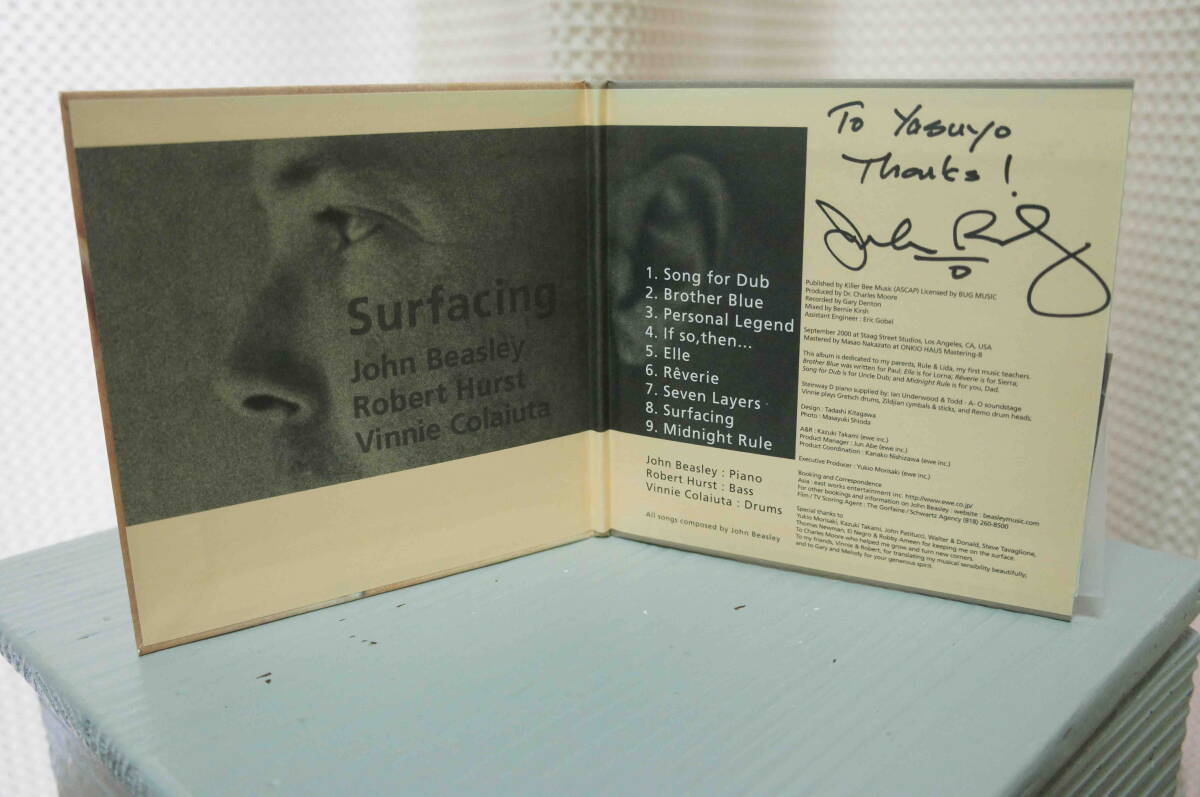 Surfacing
John Beasley
Robert Hurst
Vinnie Colaiuta
1. Song for Dub
2. Brother Blue
3. Personal Legend
4. If so,then...
5. Elle
6. Rêverie
7. Seven Layers
8. Surfacing
9. Midnight Rule
John Beasley : Piano
Robert Hurst : Bass
Vinnie Colaiuta : Drums
All songs composed by John Beasley
To Yasuyo
Thanks!
Published by Killer Bee Music (ASCAP) Licensed by BUG MUSIC
Produced by Dr. Charles Moore
Recorded by Gary Denton
Mixed by Bernie Kirsh
Assistant Engineer : Eric Gobel
September 2000 at Staag Street Studios, Los Angeles, CA, USA
Mastered by Masao Nakazato at ONKIO HAUS Mastering-8
This album is dedicated to my parents, Rule & Lida, my first music teachers.
Brother Blue was written for Paul; Elle is for Lorna; Rêverie is for Sierra;
Song for Dub is for Uncle Dub; and Midnight Rule is for you, Dad.
Steinway D piano supplied by: Ian Underwood & Todd - A- O soundstage
Vinnie plays Gretsch drums, Zildjian cymbals & sticks, and Remo drum heads.
Design : Tadashi Kitagawa
Photo : Masayuki Shioda
A&R : Kazuki Takami (ewe inc.)
Product Manager : Jun Abe (ewe inc.)
Product Coordination : Kanako Nishizawa (ewe inc.)
Executive Producer : Yukio Morisaki (ewe inc.)
Booking and Correspondence
Asia : east works entertainment inc. http://www.ewe.co.jp/
For other bookings and information on John Beasley : website : beasleymusic.com
Film / TV Scoring Agent : The Gorfaine / Schwartz Agency (818) 260-8500
Special thanks to
Yukio Morisaki, Kazuki Takami, John Patitucci, Walter & Donald, Steve Tavaglione,
Thomas Newman, El Negro & Robby Ameen for keeping me on the surface.
To Charles Moore who helped me grow and turn new corners.
To my friends, Vinnie & Robert, for translating my musical sensibility beautifully;
and to Gary and Melody for your generous spirit.